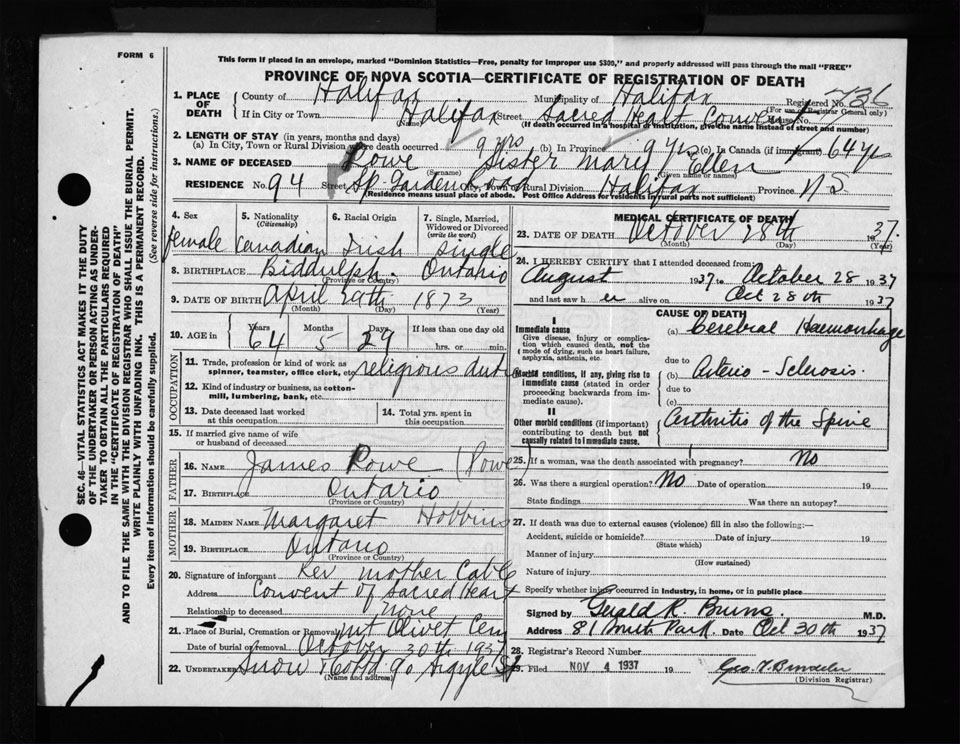 FORM 6
This form if placed in an envelope, marked "Dominion Statistics—Free, penalty for improper use $300," and properly addressed will pass through the mail "FREE"
PROVINCE OF NOVA SCOTIA—CERTIFICATE OF REGISTRATION OF DEATH
1. PLACE OF DEATH
County of Halifax Municipality of Halifax Registered No. 736
(For use of Registrar General only)
If in City or Town Halifax Street Sacred Heart Convent House No.
(Name) (If death occurred in a hospital or institution, give the name instead of street and number)
2. LENGTH OF STAY (in years, months and days)
(a) In City, Town or Rural Division where death occurred 9 yrs (b) In Province 9 yrs (c) In Canada (if immigrant) 64 yrs
3. NAME OF DECEASED Rowe Sister Mary Ellen
(Surname) (Given name or names)
RESIDENCE No. 94 Street Sp. Garden Road City, Town or Rural Division Halifax Province N S.
(Residence means usual place of abode. Post Office Address for residents in rural parts not sufficient)
4. Sex 5. Nationality (Citizenship) 6. Racial Origin 7. Single, Married, Widowed or Divorced (write the word)
female Canadian Irish single
8. BIRTHPLACE Biddulph. Ontario
(Province or Country)
9. DATE OF BIRTH April 29th 1873
(Month) (Day) (Year)
10. AGE in Years Months Days If less than one day old
64 5 29 hrs. or min.
OCCUPATION
11. Trade, profession or kind of work as spinner, teamster, office clerk, etc. religious duties
12. Kind of industry or business, as cotton-mill, lumbering, bank, etc.
13. Date deceased last worked at this occupation
14. Total yrs. spent in this occupation
15. If married give name of wife or husband of deceased
FATHER
16. NAME James Rowe (Rowe)
17. BIRTHPLACE Ontario
(Province or Country)
MOTHER
18. MAIDEN NAME Margaret Hobbins
19. BIRTHPLACE Ontario
(Province or Country)
20. Signature of informant Rev Mother Cable
Address Convent of Sacred Heart
Relationship to deceased None
21. Place of Burial, Cremation or Removal Mt Olivet Cem
Date of burial or removal October 30th 1937
22. UNDERTAKER Snow & Co Ltd 90 Argyle St
(Name and address)
MEDICAL CERTIFICATE OF DEATH
23. DATE OF DEATH October 28th 1937.
(Month) (Day) (Year)
24. I HEREBY CERTIFY that I attended deceased from:
August 1937 to October 28 1937
and last saw h er alive on Oct 28th 1937
CAUSE OF DEATH
I
Immediate cause
Give disease, injury or complication which caused death, not the mode of dying, such as heart failure, asphyxia, asthenia, etc.
(a) Cerebral Haemorrhage
due to
Morbid conditions, if any, giving rise to immediate cause (stated in order proceeding backwards from immediate cause).
(b) Arterio-Sclerosis.
due to
(c)
II
Other morbid conditions (if important) contributing to death but not causally related to immediate cause.
Arthritis of the Spine
25. If a woman, was the death associated with pregnancy? No
26. Was there a surgical operation? No Date of operation 19
State findings Was there an autopsy?
27. If death was due to external causes (violence) fill in also the following:
Accident, suicide or homicide? Date of injury 19
(State which)
Manner of injury
(How sustained)
Nature of injury
Specify whether injury occurred in industry, in home, or in public place
Signed by Gerald R. Burns. M.D.
Address 81 South Park. Date Oct 30th 1937
28. Registrar's Record Number
29. Filed NOV 4 1937 19
(Division Registrar)
SEC. 46—VITAL STATISTICS ACT MAKES IT THE DUTY
OF THE UNDERTAKER OR PERSON ACTING AS UNDER-
TAKER TO OBTAIN ALL THE PARTICULARS REQUIRED
IN THE "CERTIFICATE OF REGISTRATION OF DEATH"
AND TO FILE THE SAME WITH THE DIVISION REGISTRAR WHO SHALL ISSUE THE BURIAL PERMIT.
WRITE PLAINLY WITH UNFADING INK. THIS IS A PERMANENT RECORD.
Every item of information should be carefully supplied. (See reverse side for instructions.)